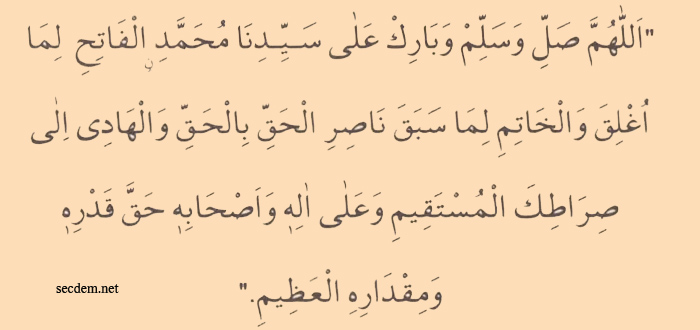 "اَللّٰهُمَّ صَلِّ وَسَلِّمْ وَبَارِكْ عَلٰى سَيِّدِنَا مُحَمَّدِ ۨالْفَاتِحِ لِمَا
اُغْلِقَ وَالْخَاتِمِ لِمَا سَبَقَ نَاصِرِ الْحَقِّ بِالْحَقِّ وَالْهَادِى اِلٰى
صِرَاطِكَ الْمُسْتَقِيمِ وَعَلٰى اٰلِهٖ وَاَصْحَابِهٖ حَقَّ قَدْرِهٖ
وَمِقْدَارِهِ الْعَظِيمِ."
secdem.net